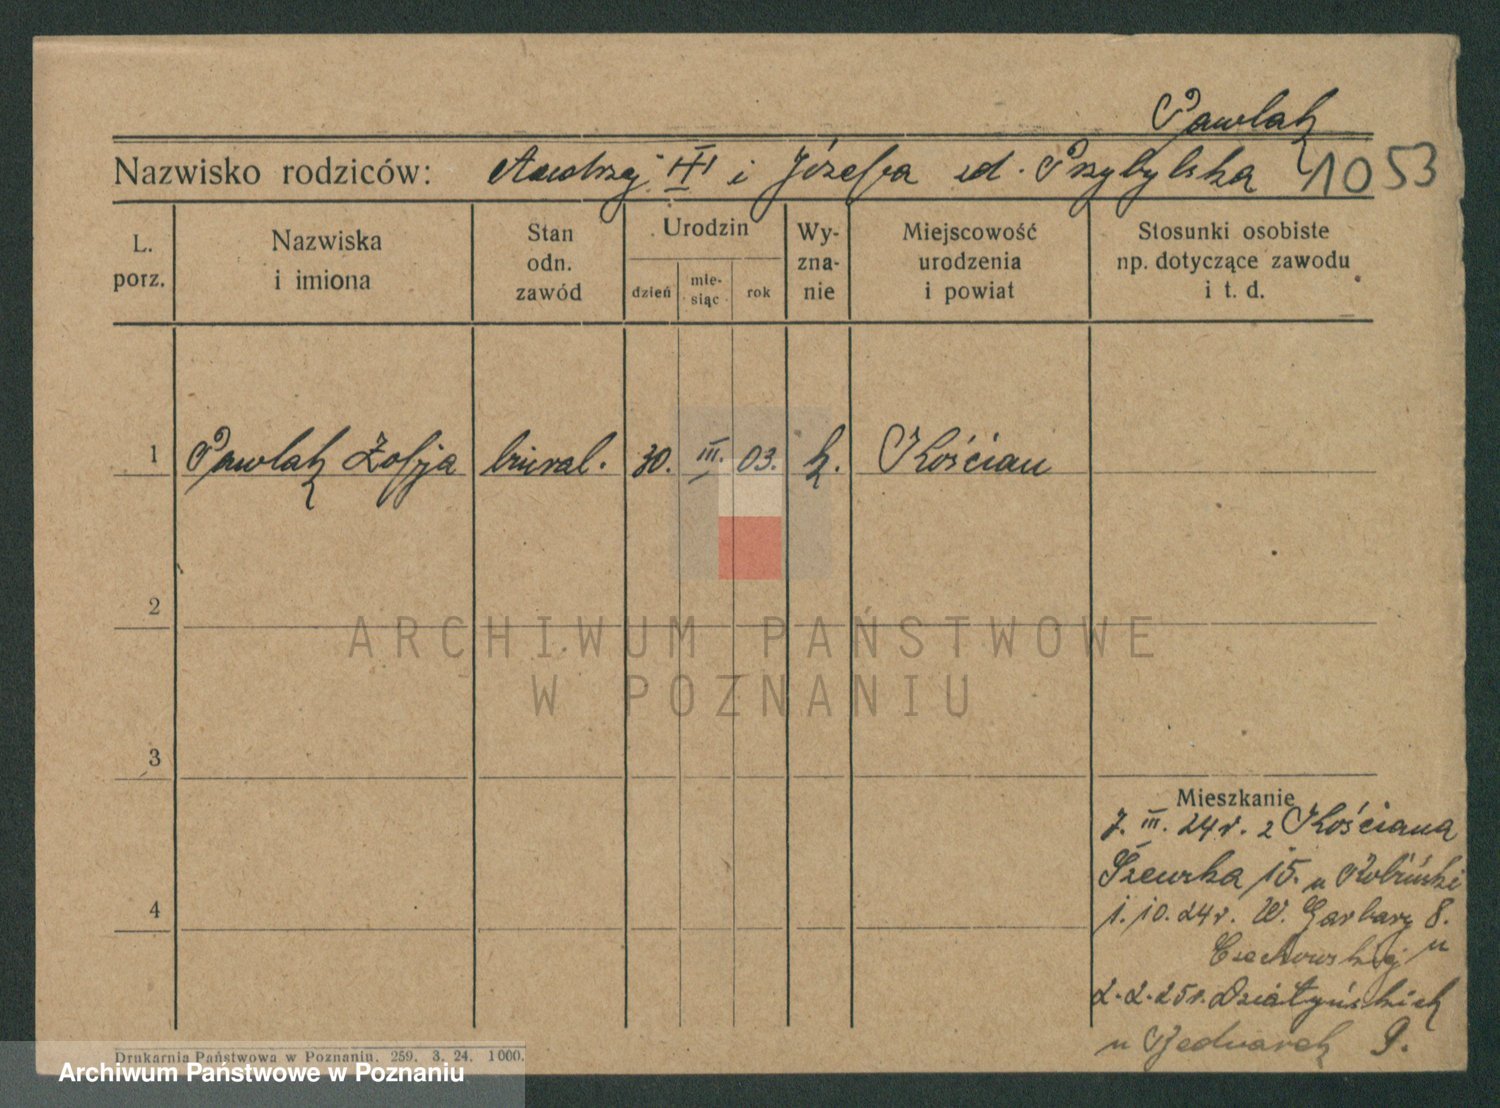 Pawlak
Nazwisko rodziców: Andrzej III i Józefa ud. Przybylska 1053
L. porz.
Nazwiska i imiona
Stan odn. zawód
Urodzin
dzień
mie-siąc
rok
Wy-zna-nie
Miejscowość urodzenia i powiat
Stosunki osobiste np. dotyczące zawodu i t. d.
1 Pawlak Zofja biural. 30. III. 03. k. Kościan
2
3
4
ARCHIWUM PAŃSTWOWE
W POZNANIU
Mieszkanie
7. III. 24 r. z Kościana
Szewska 15. u
1. 10. 24 r. W. Garbary 8.
Czechowskiej u
2. 2. 25 r. Działyńskich
u 9.
Drukarnia Państwowa w Poznaniu. 259. 3. 24. 1000.
Archiwum Państwowe w Poznaniu